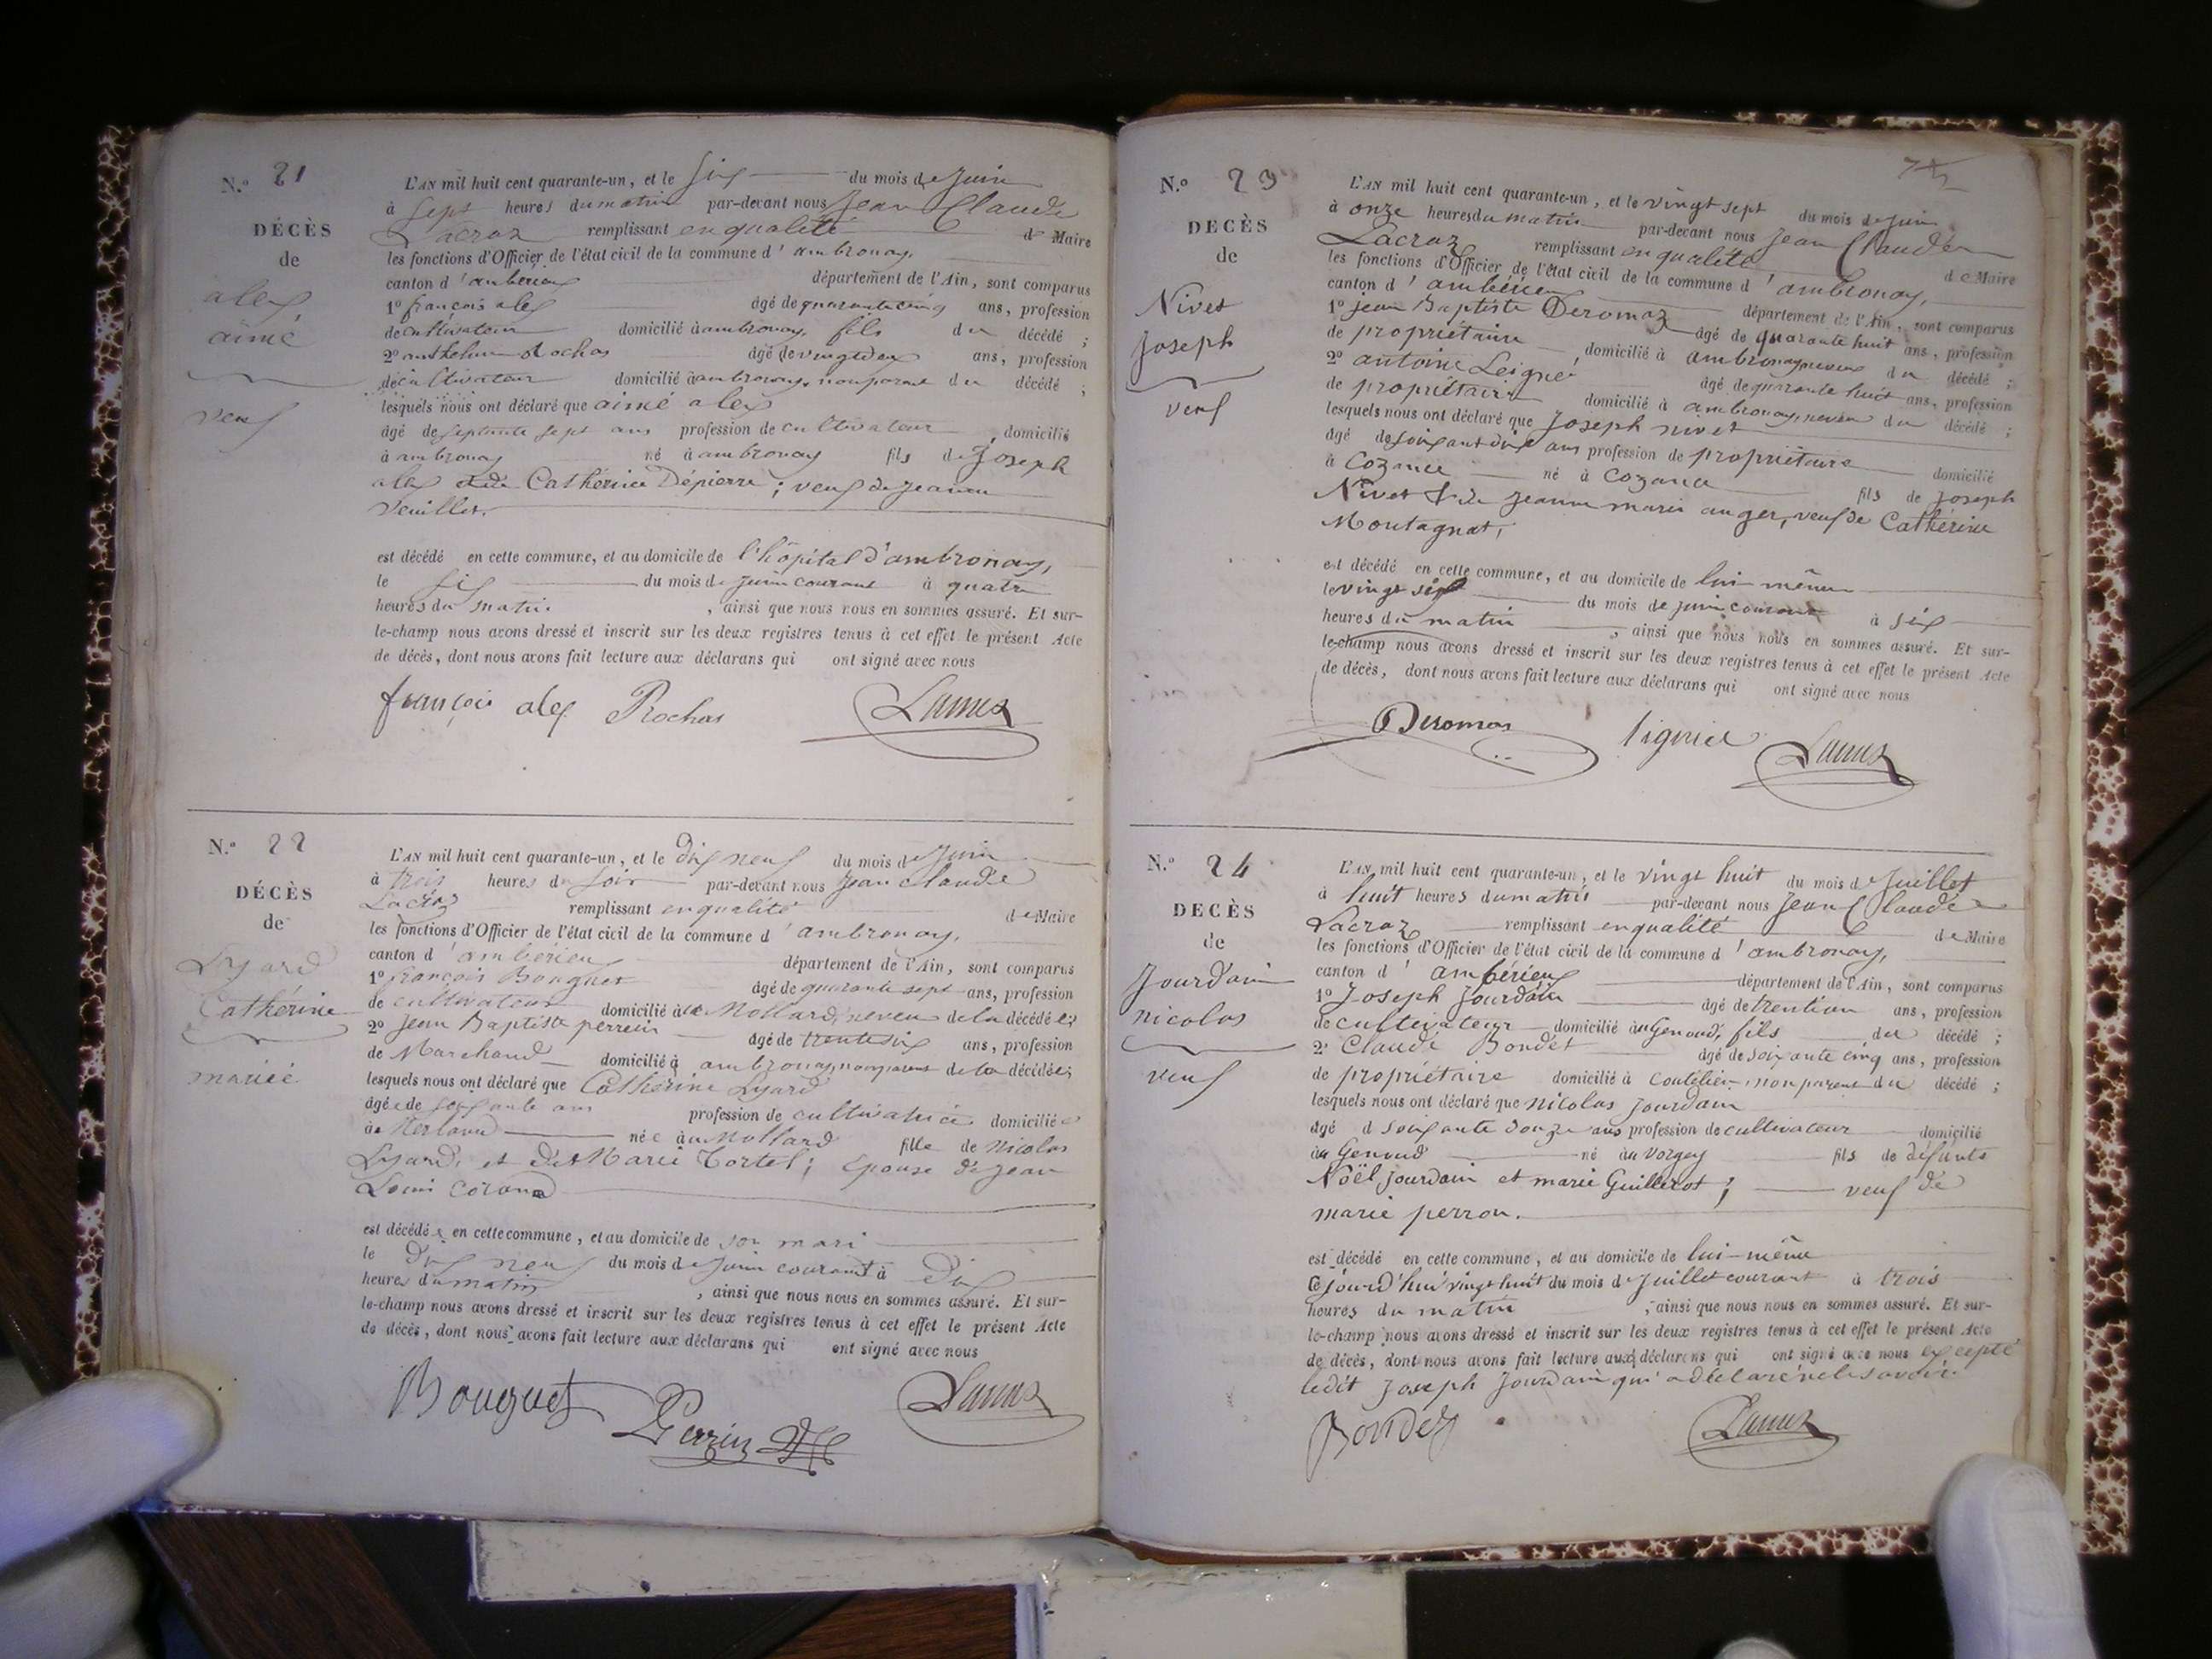 N.º 21
DÉCÈS
de
alex
aimé
veuf
L'AN mil huit cent quarante-un, et le six du mois de Juin
à sept heures du matin par-devant nous Jean Claude
Lacroz remplissant en qualité de Maire
les fonctions d'Officier de l'état civil de la commune d'ambronay,
canton d'ambérieu département de l'Ain, sont comparus
1º françois alex âgé de quarante cinq ans, profession
de cultivateur domicilié à ambronay, fils du décédé ;
2º anthelme Rochas âgé de vingt deux ans, profession
de cultivateur domicilié à ambronay, non parent du décédé ;
lesquels nous ont déclaré que aimé alex
âgé de septante sept ans profession de cultivateur, domicilié
à ambronay né à ambronay fils de Joseph
alex et de Catherine Dépierre ; veuf de Jeanne
Veuillet.
est décédé en cette commune, et au domicile de l'hôpital d'ambronay,
le six du mois de juin courant à quatre
heures du matin, ainsi que nous nous en sommes assuré. Et sur-
le-champ nous avons dressé et inscrit sur les deux registres tenus à cet effet le présent Acte
de décès, dont nous avons fait lecture aux déclarans qui ont signé avec nous
françois alex Rochas
N.º 22
DÉCÈS
de
Lyard
Cathérine
mariée
L'AN mil huit cent quarante-un, et le dix neuf du mois de Juin
à trois heures du soir par-devant nous Jean Claude
Lacroz remplissant en qualité de Maire
les fonctions d'Officier de l'état civil de la commune d'ambronay,
canton d'ambérieu département de l'Ain, sont comparus
1º françois Bouguet âgé de quarante sept ans, profession
de cultivateur domicilié au Mollard, neveu de la décédée ;
2º Jean Baptiste perrein âgé de trente six ans, profession
de Marchand domicilié à ambronay, non parent de la décédée ;
lesquels nous ont déclaré que Cathérine Lyard
âgée de soixante ans profession de cultivatrice domiciliée
à née au Mollard fille de Nicolas
Lyard, et de Marie Tortel ; épouse de Jean
Louis
est décédée en cette commune, et au domicile de son mari
le dix neuf du mois de Juin courant à dix
heures du matin, ainsi que nous nous en sommes assuré. Et sur-
le-champ nous avons dressé et inscrit sur les deux registres tenus à cet effet le présent Acte
de décès, dont nous avons fait lecture aux déclarans qui ont signé avec nous
Bouguet Perrin
N.º 23
DECÈS
de
Nivet
Joseph
veuf
L'AN mil huit cent quarante-un, et le vingt sept du mois de Juin
à onze heures du matin par-devant nous Jean Claude
Lacroz remplissant en qualité de Maire
les fonctions d'Officier de l'état civil de la commune d'ambronay,
canton d'ambérieu département de l'Ain, sont comparus
1º Jean Baptiste Deromaz âgé de quarante huit ans, profession
de propriétaire, domicilié à ambronay neveu du décédé ;
2º antoine Leignié âgé de quarante huit ans, profession
de propriétaire domicilié à ambronay, neveu du décédé ;
lesquels nous ont déclaré que Joseph nivet
âgé de soixant dix ans profession de propriétaire domicilié
à Cozance né à Cozance fils de Joseph
Nivet & de Jeanne marie auger, veuf de Cathérine
Montagnat,
est décédé en cette commune, et au domicile de lui-même
le vingt sept du mois de juin courant à six
heures du matin, ainsi que nous nous en sommes assuré. Et sur-
le-champ nous avons dressé et inscrit sur les deux registres tenus à cet effet le présent Acte
de décès, dont nous avons fait lecture aux déclarans qui ont signé avec nous
Deromas
N.º 24
DECÈS
de
Jourdain
nicolas
veuf
L'AN mil huit cent quarante-un, et le vingt huit du mois de Juillet
à huit heures du matin par-devant nous Jean Claude
Lacroz remplissant en qualité de Maire
les fonctions d'Officier de l'état civil de la commune d'ambronay,
canton d'ambérieu département de l'Ain, sont comparus
1º Joseph Jourdain âgé de trention ans, profession
de cultivateur domicilié au Genoud, fils du décédé ;
2º Claude Bondet âgé de soixante cinq ans, profession
de propriétaire domicilié à Coutelieu, non parent du décédé ;
lesquels nous ont déclaré que nicolas Jourdain
âgé d soixante douze ans profession de cultivateur domicilié
au Genoud né au Vorgey fils de défunts
Noël Jourdain et marie Guillerot ; veuf de
marie perron.
est décédé en cette commune, et au domicile de lui-même
cejourd'hui vingt huit du mois de Juillet courant à trois
heures du matin, ainsi que nous nous en sommes assuré. Et sur-
le-champ nous avons dressé et inscrit sur les deux registres tenus à cet effet le présent Acte
de décès, dont nous avons fait lecture aux déclarans qui ont signé avec nous excepté
ledit Joseph Jourdain qui a déclaré ne le savoir.
Bondet